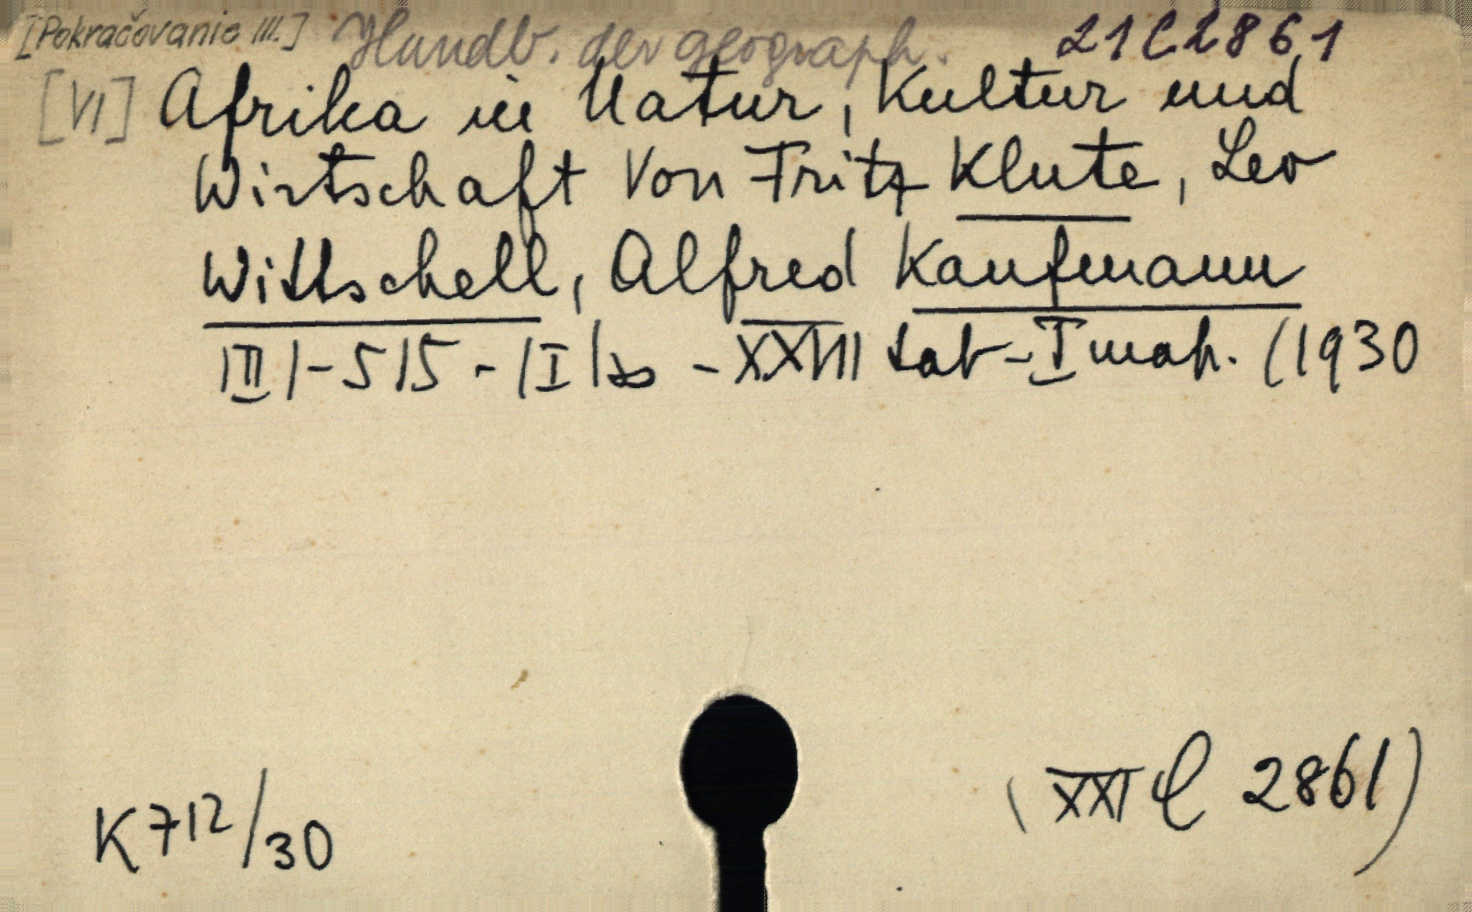 [Pokračovanie III.] Handb. der geograph. 21C2861
[VI] Afrika in Natur, Kultur und
Wirtschaft Von Fritz Klute, Leo
Wittschell, Alfred Kaufmann
|III|-515-|I|ss-XXVIII tab-I map. (1930
K 712/30
(XXI C 2861)